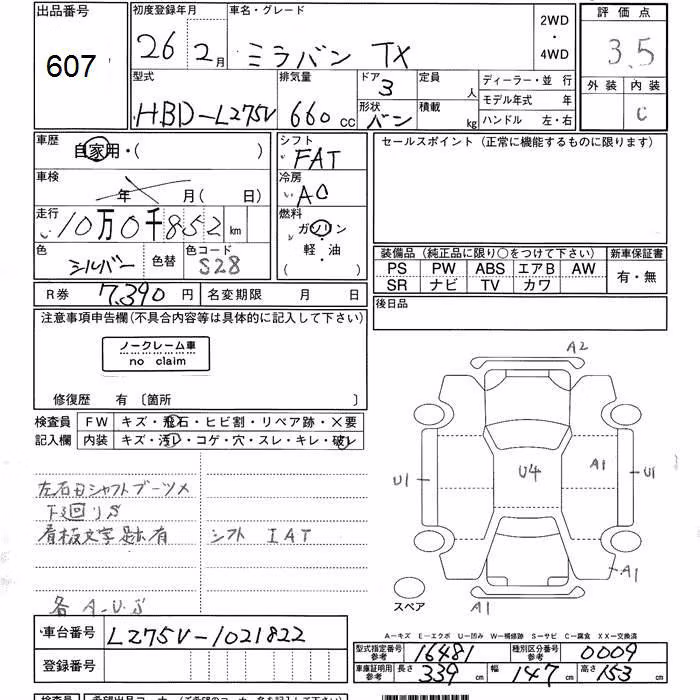 出品番号 初度登録年月 車名・グレード 2WD ・ 4WD 評価点
607 26年 2月 ミラバン TX 3.5
外装 内装
C
型式 排気量 ドア 定員 人 ディーラー・並 行
HBD-L275V 660cc 3 モデル年式 年
形状 バン 積載 kg ハンドル 左・右
車歴 自家用・( ) シフト FAT セールスポイント(正常に機能するものに限ります)
車検 年 月(日) 冷房 AC
走行 10万0千852km 燃料 ガソリン・軽・油 ( )
色 シルバー 色替 色コード S28
装備品(純正品に限り○をつけて下さい) 新車保証書
PS PW ABS エアB AW 有・無
SR ナビ TV カワ
R券 7,390円 名変期限 月 日 後日品
注意事項申告欄(不具合内容等は具体的に記入して下さい)
ノークレーム車
no claim
修復歴 有 〔箇所 〕
検査員 FW キズ・飛石・ヒビ割・リペア跡・×要
記入欄 内装 キズ・汚レ・コゲ・穴・スレ・キレ・破レ
左右Dシャフトブーツメ
下廻りS
看板文字跡有 シフト IAT
各 A.U.S
A2
U1 U4 A1 U1
A1
スペア A1
A-キズ E-エクボ U-凹み W-補修跡 S-サビ C-腐食 XX-交換済
車台番号 L275V-1021822
型式指定番号 参考 16481 種別区分番号 参考 0009
登録番号
車庫証明用 参考 長さ 339cm 幅 147cm 高さ 153cm
検査員 希望出品コーナー(ご希望のコーナー名を記入して下さい)